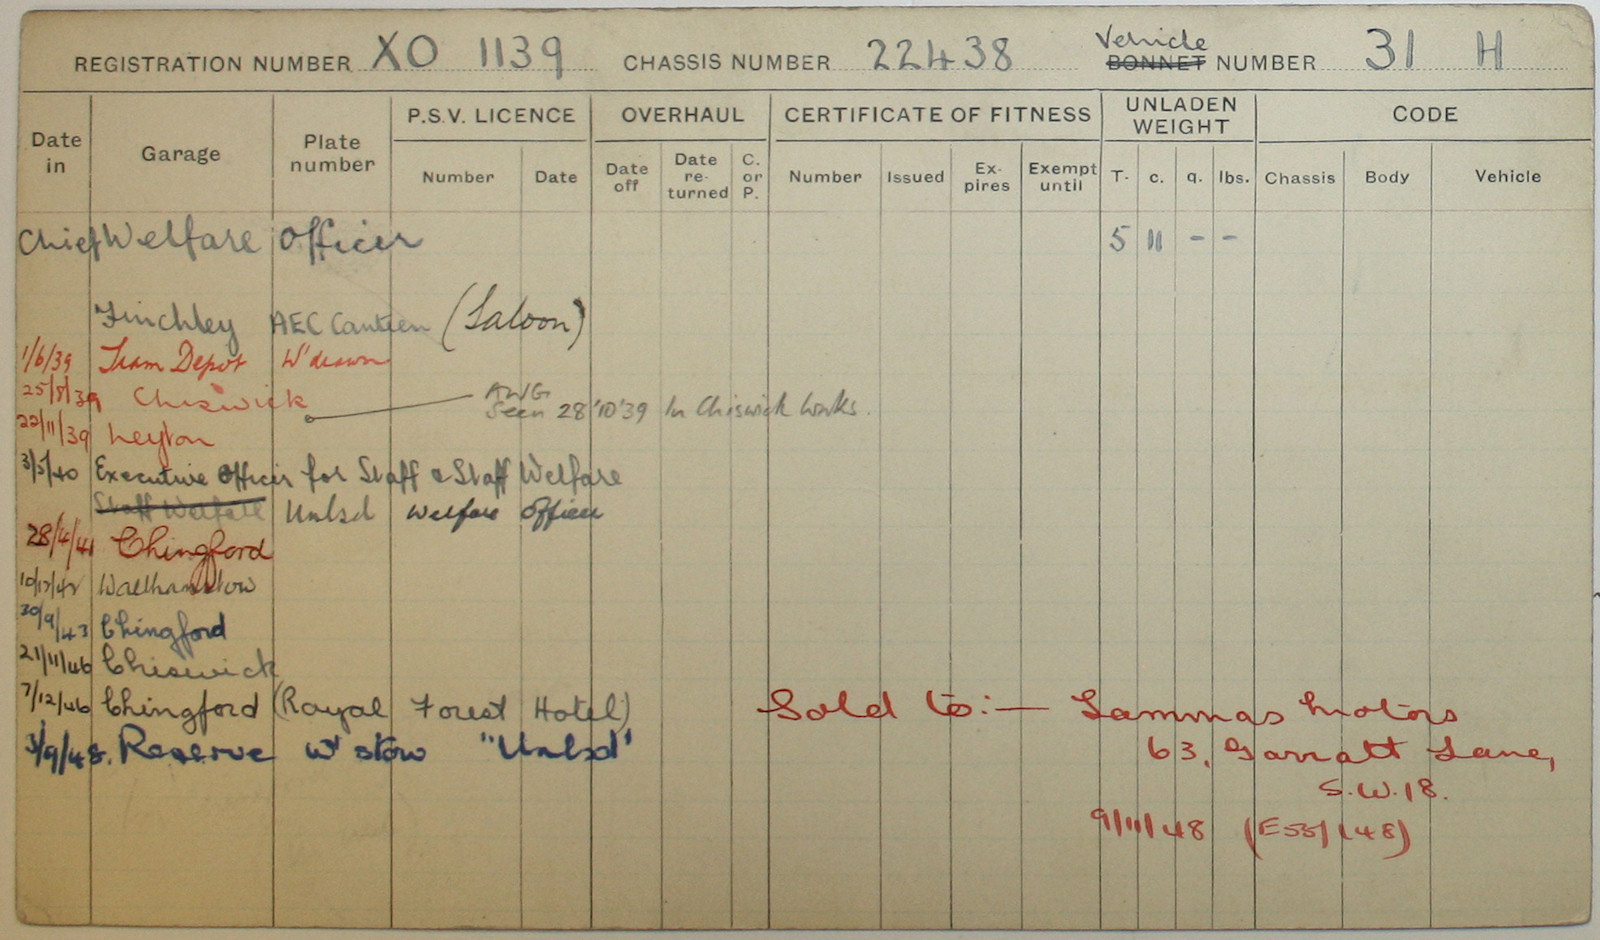 REGISTRATION NUMBER XO 1139 CHASSIS NUMBER 22438 Vehicle BONNET NUMBER 31 H
Date in Garage Plate number P.S.V. LICENCE OVERHAUL CERTIFICATE OF FITNESS UNLADEN WEIGHT CODE
Number Date Date off Date re-turned C. or P. Number Issued Ex-pires Exempt until T. c. q. lbs. Chassis Body Vehicle
Chief Welfare Officer 5 11 - -
Finchley AEC Canteen (Saloon)
1/6/39 Tram Depot W'drawn
25/8/39 Chiswick
AWG
Seen 28'10'39 In Chiswick Works.
22/11/39 Leyton
3/5/40 Executive Officer for Staff & Staff Welfare
Staff Welfare Unlsd Welfare Officer
28/4/41 Chingford
Walthamstow
30/9/43 Chingford
21/11/46 Chiswick
7/12/46 Chingford (Royal Forest Hotel) Sold to:— Lammas Motors
3/9/48. Reserve W'stow "Unlsd" 63, Garratt Lane,
S.W.18.
9/11/48 (E55/148)